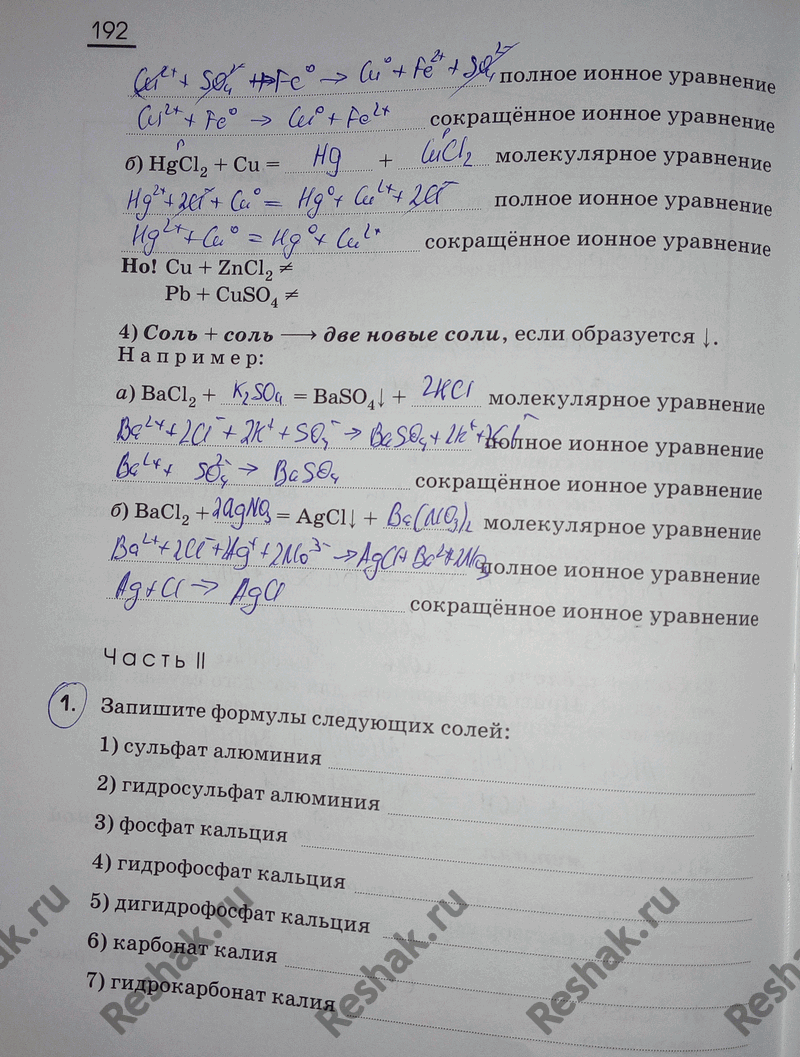 192
Cu²⁺ + SO₄²⁻ + Fe⁰ → Cu⁰ + Fe²⁺ + SO₄²⁻ полное ионное уравнение
Cu²⁺ + Fe⁰ → Cu⁰ + Fe²⁺ сокращённое ионное уравнение
б) HgCl₂ + Cu = Hg + CuCl₂ молекулярное уравнение
Hg²⁺ + 2Cl⁻ + Cu⁰ = Hg⁰ + Cu²⁺ + 2Cl⁻ полное ионное уравнение
Hg²⁺ + Cu⁰ = Hg⁰ + Cu²⁺ сокращённое ионное уравнение
Но! Cu + ZnCl₂ ≠
Pb + CuSO₄ ≠
4) Соль + соль ⟶ две новые соли, если образуется ↓.
Например:
а) BaCl₂ + K₂SO₄ = BaSO₄↓ + 2KCl молекулярное уравнение
Ba²⁺ + 2Cl⁻ + 2K⁺ + SO₄⁻ → BaSO₄ + 2K⁺ + 2Cl⁻ полное ионное уравнение
Ba²⁺ + SO₄²⁻ → BaSO₄ сокращённое ионное уравнение
б) BaCl₂ + 2AgNO₃ = AgCl↓ + Ba(NO₃)₂ молекулярное уравнение
Ba²⁺ + 2Cl⁻ + Ag⁺ + 2NO³⁻ → AgCl + Ba²⁺ + 2NO₃ полное ионное уравнение
Ag + Cl → AgCl сокращённое ионное уравнение
Часть II
1. Запишите формулы следующих солей:
1) сульфат алюминия
2) гидросульфат алюминия
3) фосфат кальция
4) гидрофосфат кальция
5) дигидрофосфат кальция
6) карбонат калия
7) гидрокарбонат калия
ak.ru
Reshak.ru
Reshak.ru
Reshak.ru
Resha